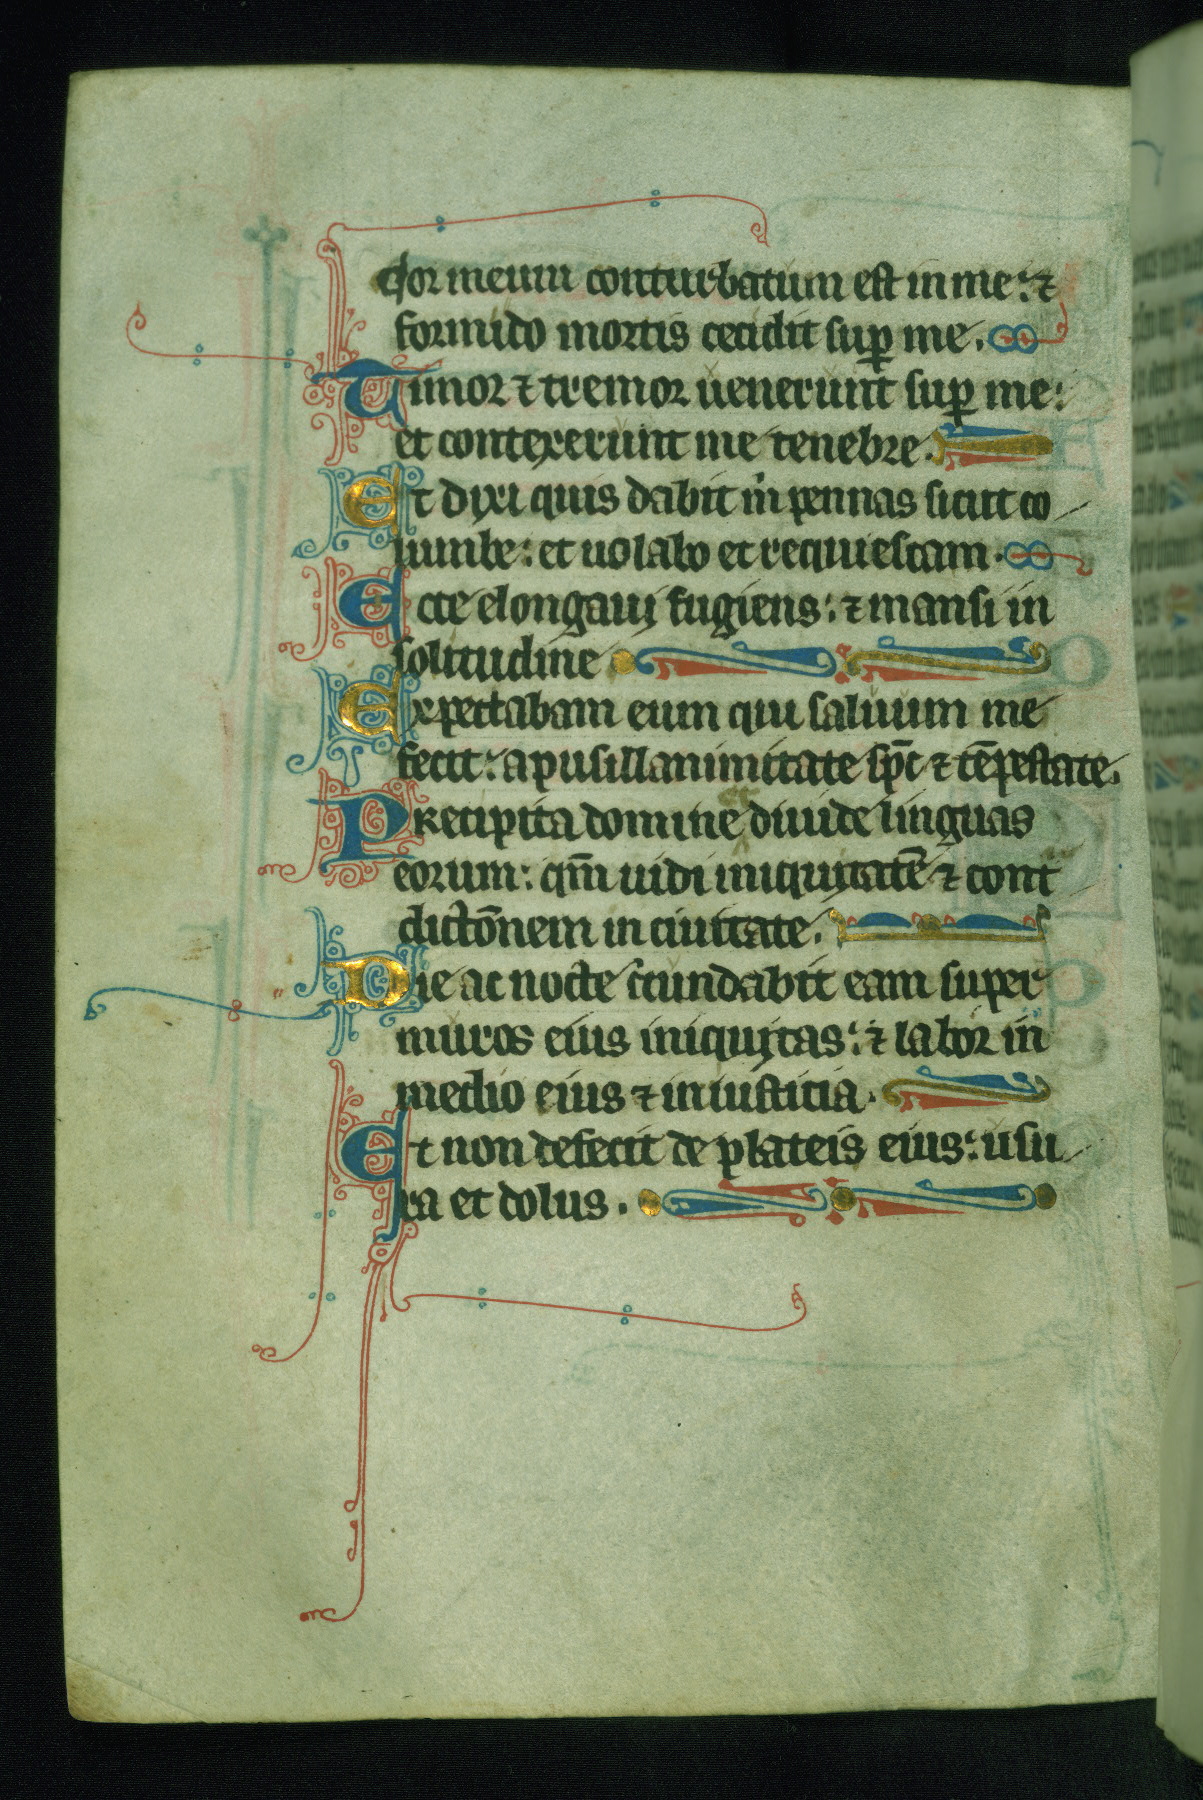 Cor meum conturbatum est in me: ⁊
formido mortis cecidit sup̱ me.
Timor ⁊ tremor uenerunt sup̱ me:
et contexerunt me tenebre.
Et dixi quis dabit m̄ pennas sicut co
lumbe: et uolabo et requiescam.
Ecce elongaui fugiens: ⁊ mansi in
solitudine
Expectabam eum qui saluum me
fecit: a pusillanimitate sp̄c ⁊ tēpestate.
Precipita domine diuide linguas
eorum: qm̄ uidi iniquitatē ⁊ cont
dictōnem in ciuitate.
Die ac nocte ccundabit eam super
muros eius iniquitas: ⁊ labor in
medio eius ⁊ iniusticia.
Et non defecit de plateis eius: usu
ra et dolus.